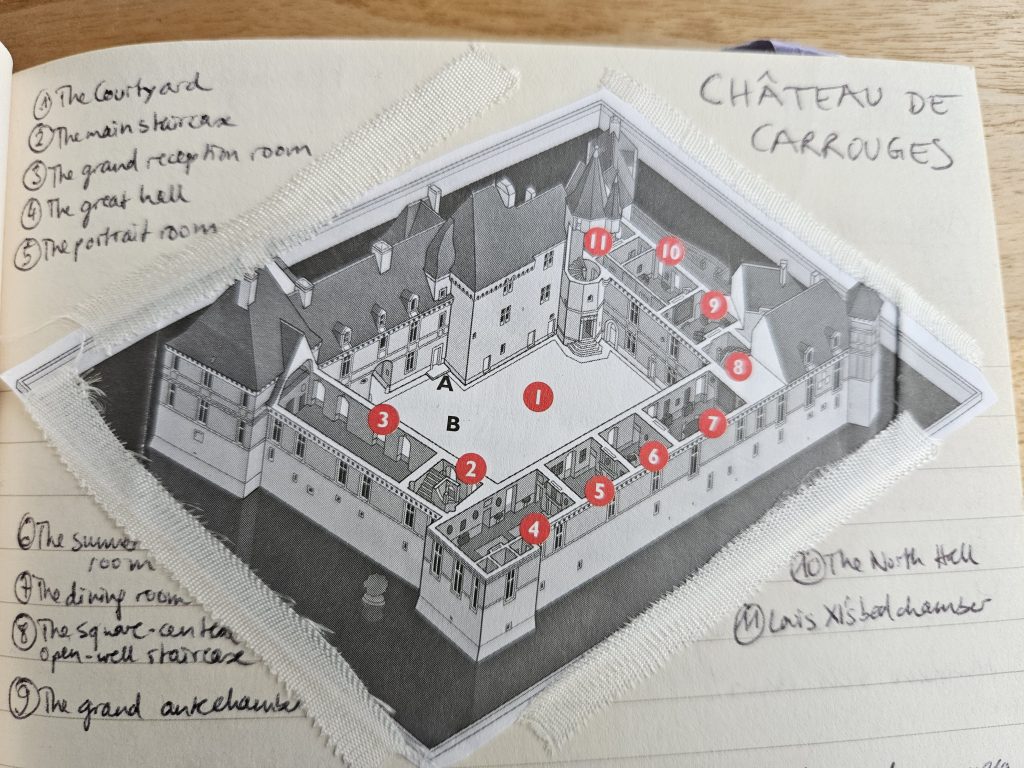 CHÂTEAU DE
CARROUGES
① The Courtyard
② The main staircase
③ The grand reception room
④ The great hall
⑤ The portrait room
11
10
9
1
8
A
3
B
7
2
6
5
4
⑥ The summer
room
⑦ The dining room
⑧ The square-center
open-well staircase
⑨ The grand antechamber
⑩ The North Hall
⑪ Lois XI's bedchamber